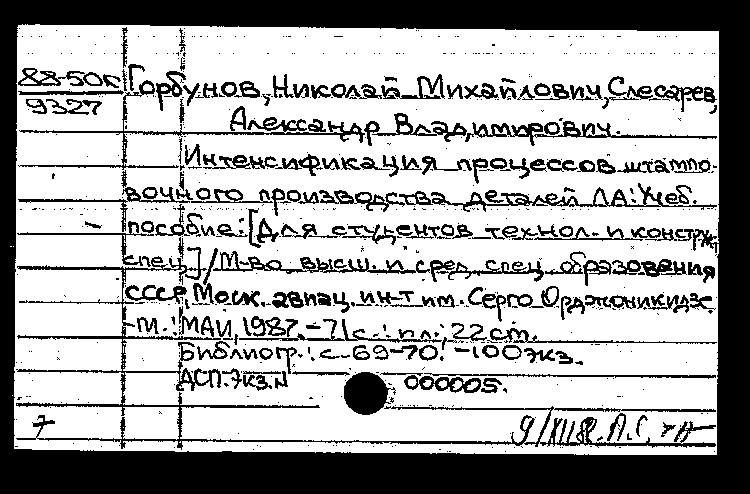 88-50к Горбунов, Николай Михайлович, Слесарев,
9327
Александр Владимирович.
Интенсификация процессов штампо-
вочного производства деталей ЛА: Учеб.
пособие: [Для студентов технол. и констрк.
спец.] / М-во высш. и сред. спец. образования
СССР, Моск. авиац. ин-т им. Серго Орджоникидзе
-М.: МАИ, 1987. - 71 с.: ил.; 22 см.
Библиогр.: с. 69-70. - 100 экз.
ДСП. Экз. N 000005.
7 9/XII 88. Л.С.